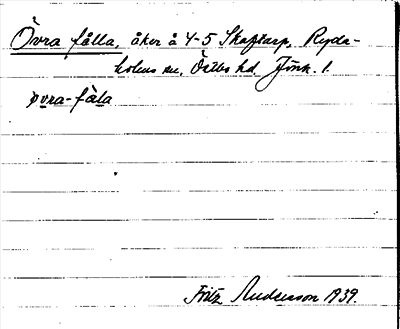 Övra fålla, åker å 4-5 Skaftarp, Ryda-
holms sn, Östbo hd Jönk. l.
övra-fåla
Fritz Andersson 1939.